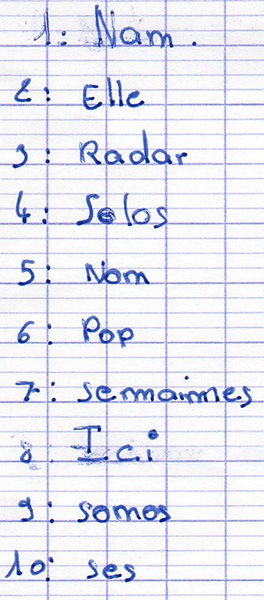 1: Nam.
2: Elle
3: Radar
4: Solos
5: Nom
6: Pop
7: semaimes
8 Ici
9: somos
10: ses